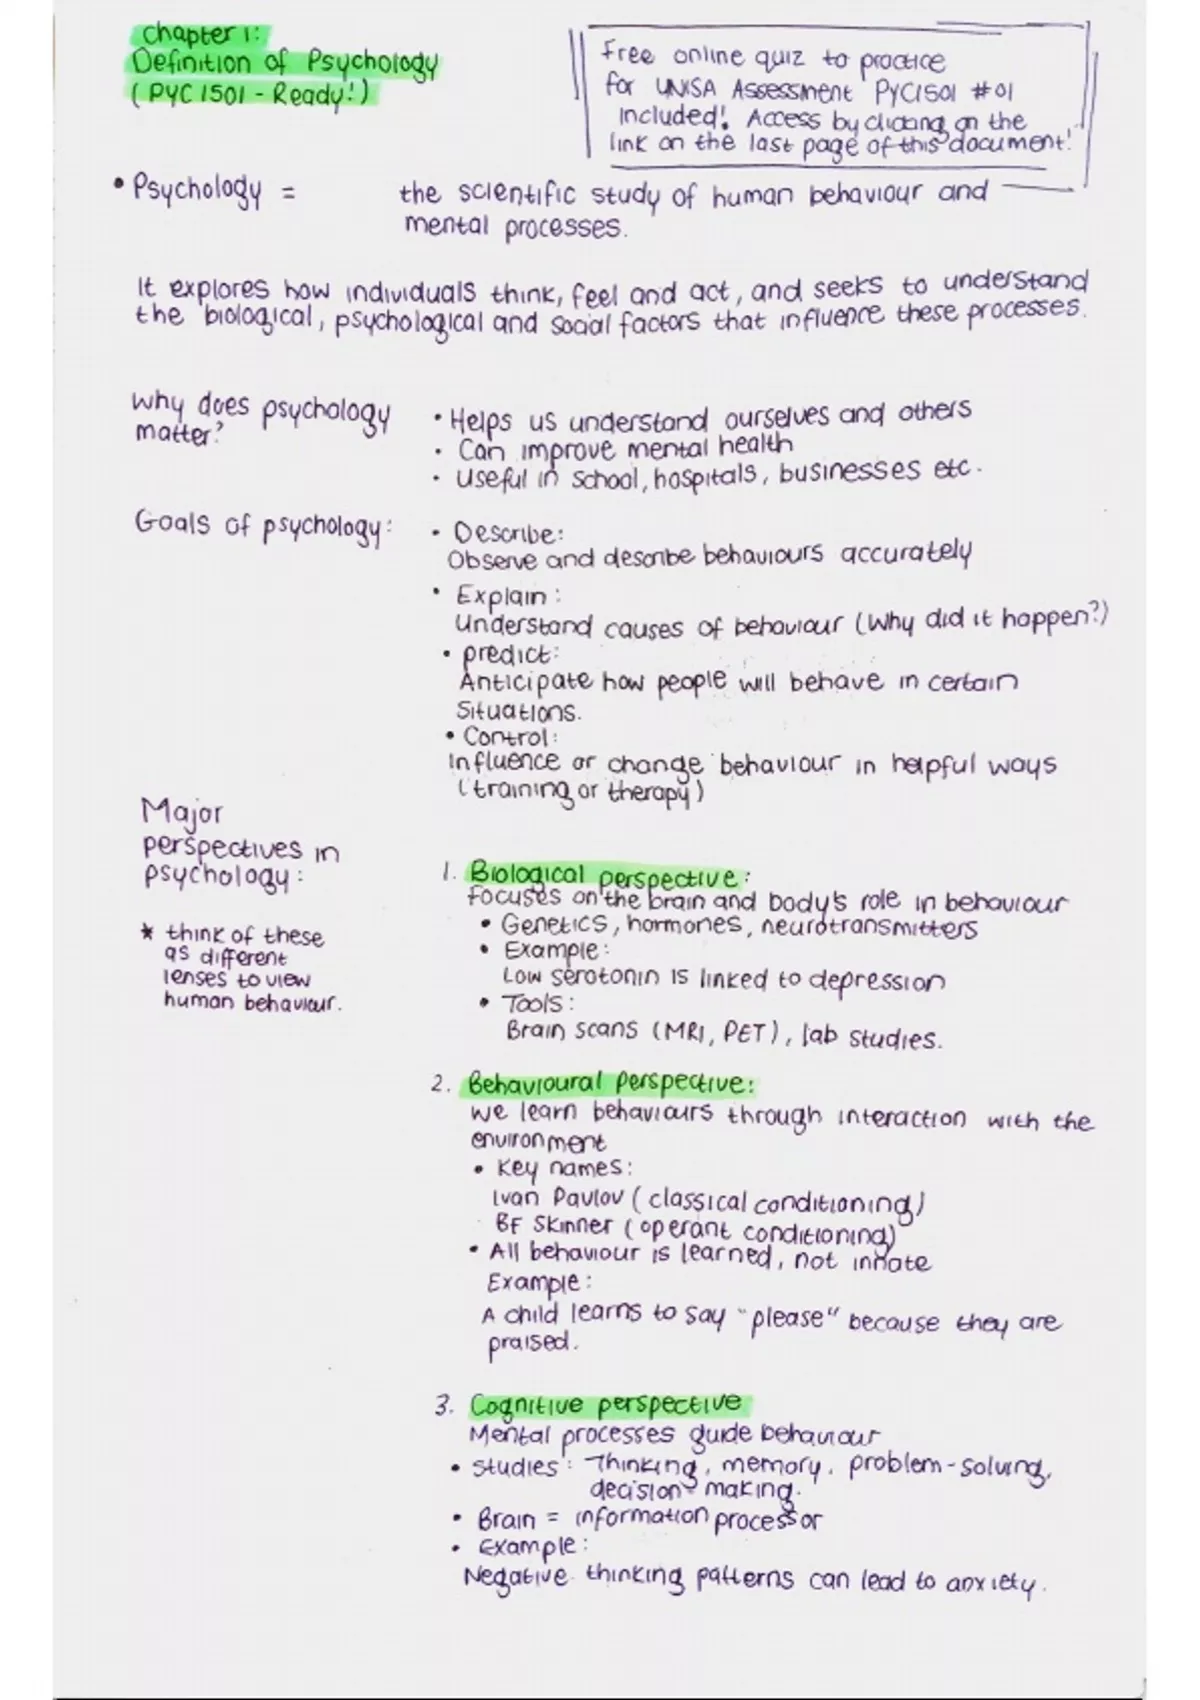 Chapter 1:
Definition of Psychology
(PYC 1501 - Ready!)
Free online quiz to practice
for UNISA Assessment PYC1501 #01
included! Access by clicking on the
link on the last page of this document!
• Psychology = the scientific study of human behaviour and
mental processes.
It explores how individuals think, feel and act, and seeks to understand
the biological, psychological and social factors that influence these processes.
Why does psychology
matter?
• Helps us understand ourselves and others
• Can improve mental health
• Useful in school, hospitals, businesses etc.
Goals of psychology:
• Describe:
Observe and describe behaviours accurately
• Explain:
Understand causes of behaviour (Why did it happen?)
• predict:
Anticipate how people will behave in certain
situations.
• Control:
Influence or change behaviour in helpful ways
(training or therapy)
Major
perspectives in
psychology:
* think of these
as different
lenses to view
human behaviour.
1. Biological perspective:
Focuses on the brain and body's role in behaviour
• Genetics, hormones, neurotransmitters
• Example:
Low serotonin is linked to depression
• Tools:
Brain scans (MRI, PET), lab studies.
2. Behavioural perspective:
We learn behaviours through interaction with the
environment
• Key names:
Ivan Pavlov (classical conditioning)
BF Skinner (operant conditioning)
• All behaviour is learned, not innate
Example:
A child learns to say "please" because they are
praised.
3. Cognitive perspective
Mental processes guide behaviour
• studies: Thinking, memory, problem-solving,
decision-making.
• Brain = information processor
• Example:
Negative thinking patterns can lead to anxiety.